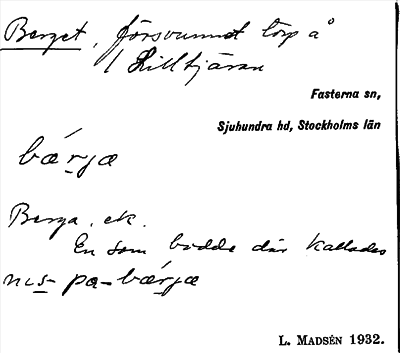 Berget, försvunnet torp å
Lilltjäran
Fasterna sn,
Sjuhundra hd, Stockholms län
bǽrjæ
Berga, ek.
En som bodde där kallades
nɩs- pa-bǽrjæ
L. MADSÉN 1932.